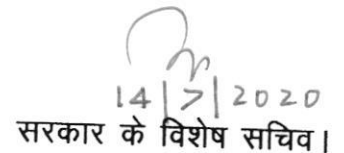 14|7|2020
सरकार के विशेष सचिव।